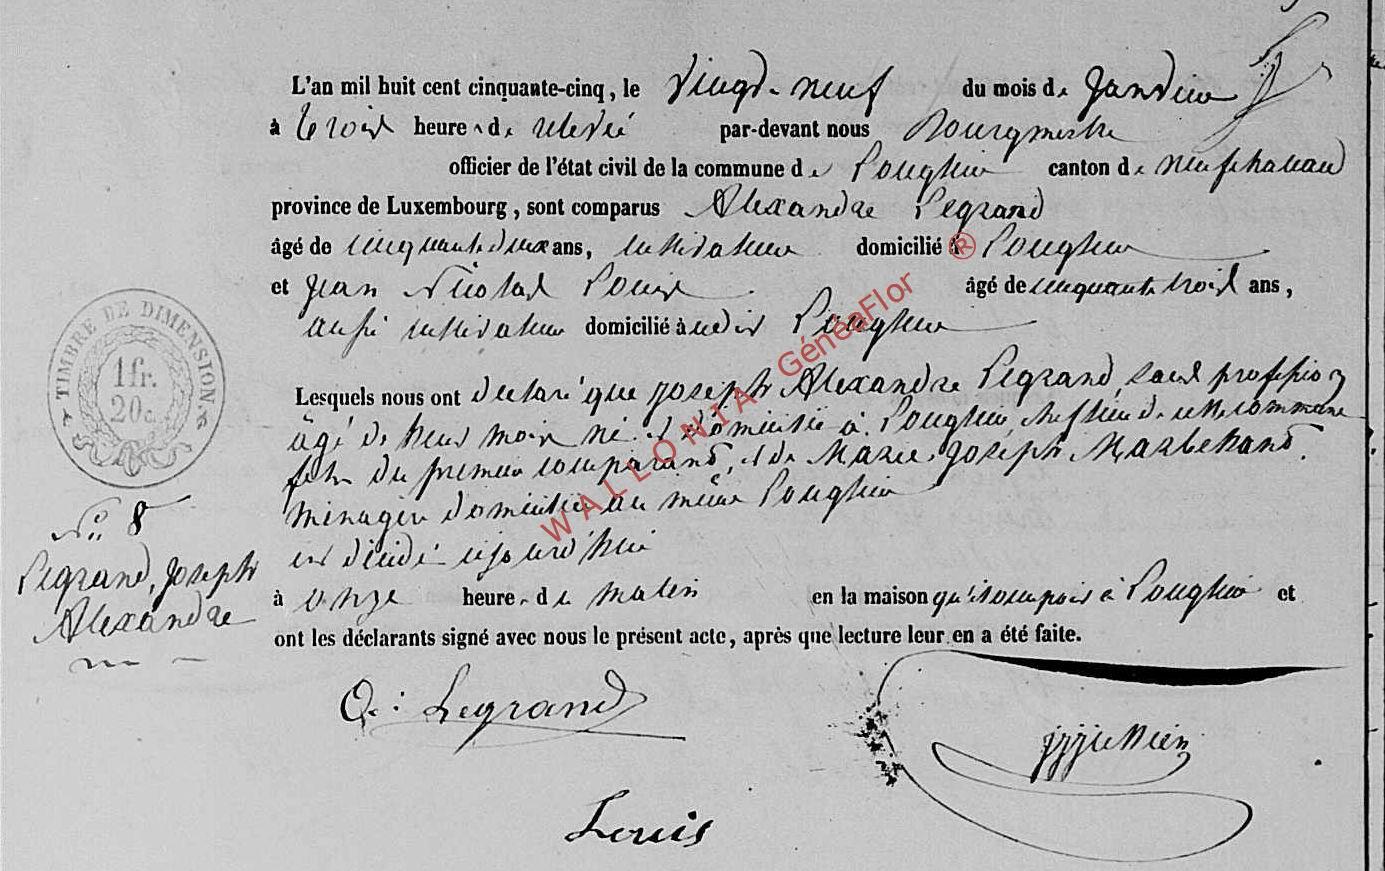 L'an mil huit cent cinquante-cinq, le vingt-neuf du mois de Janvier
à trois heures de relevé par-devant nous Bourgmestre
officier de l'état civil de la commune de Longlier canton de neufchateau
province de Luxembourg, sont comparus Alexandre Legrand
âgé de cinquante deux ans, cultivateur domicilié à Longlier
et Jean Nicolas Louis âgé de cinquante trois ans,
aussi cultivateur domicilié à audit Longlier
Lesquels nous ont declaré que Joseph Alexandre Legrand, sans profession
âgé de neuf mois né et domicilié à Longlier, chef lieu de cette commune
fils du premier comparand, et de Marie Joseph Marbehand.
ménagère domiciliée au même Longlier
est décédé aujourd'hui
à onze heures de matin en la maison qu'il occupait à Longlier et
ont les déclarants signé avec nous le présent acte, après que lecture leur en a été faite.
TIMBRE DE DIMENSION
1 fr.
20 c.
N° 8
Legrand, Joseph
Alexandre
A: Legrand
Louis
WALLONIA GénéaFlor ®